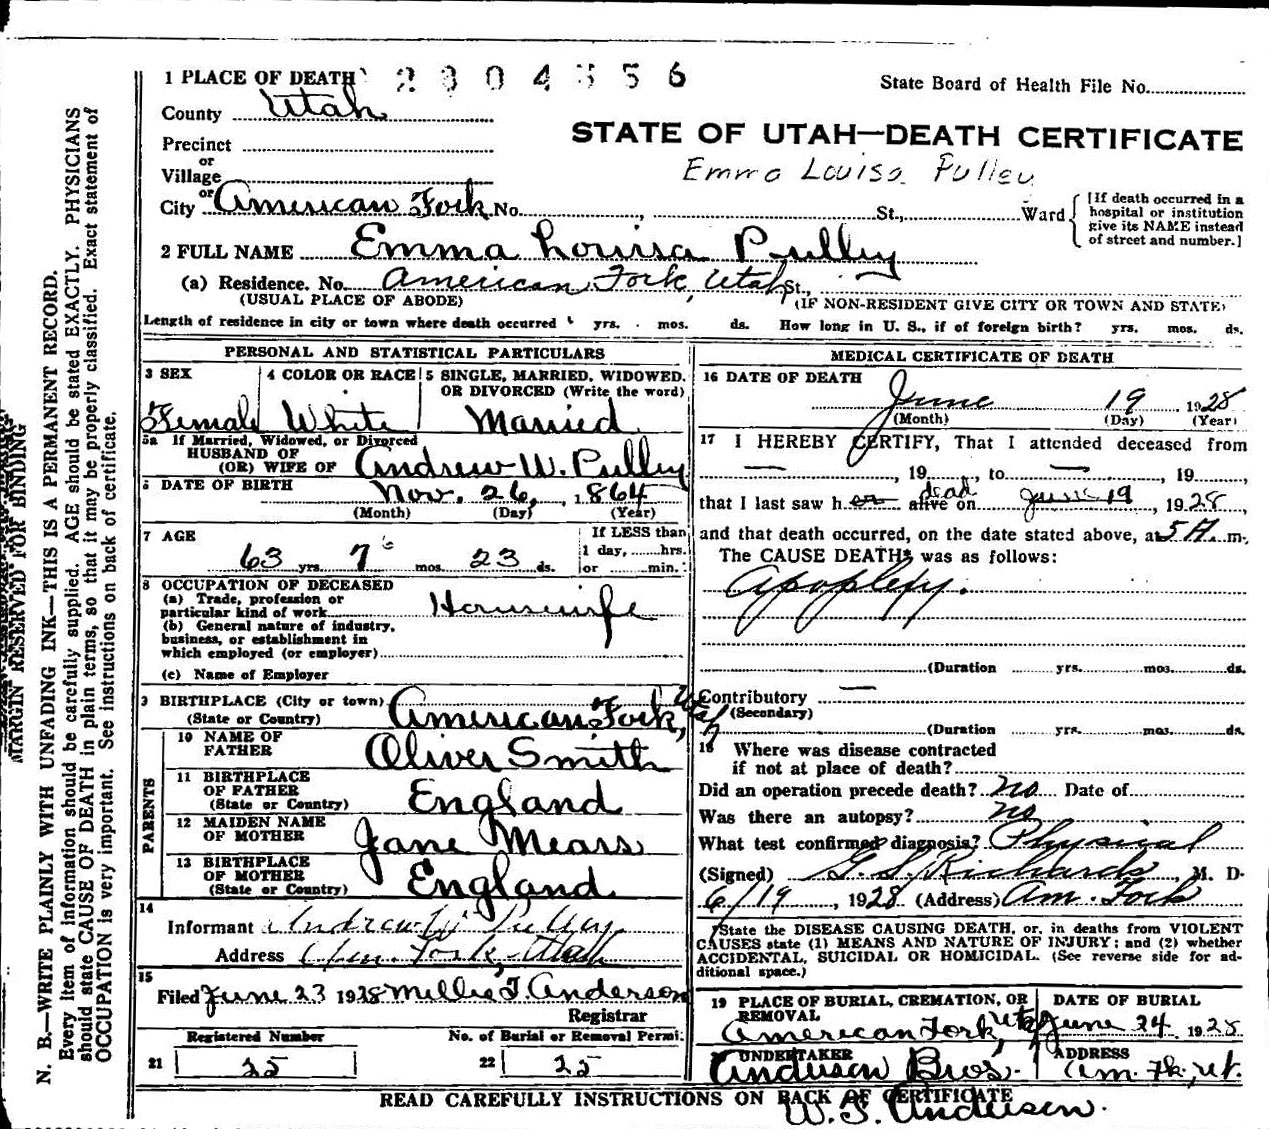 1 PLACE OF DEATH 2304556
State Board of Health File No.
County Utah
STATE OF UTAH—DEATH CERTIFICATE
Precinct
or
Village
Emma Louisa Pulley
or
City American Fork No. , St., Ward
[If death occurred in a
hospital or institution
give its NAME instead
of street and number.]
2 FULL NAME Emma Louisa Pulley
(a) Residence. No. American Fork, Utah St.,
(USUAL PLACE OF ABODE) (IF NON-RESIDENT GIVE CITY OR TOWN AND STATE)
Length of residence in city or town where death occurred yrs. mos. ds. How long in U. S., if of foreign birth? yrs. mos. ds.
PERSONAL AND STATISTICAL PARTICULARS
3 SEX 4 COLOR OR RACE 5 SINGLE, MARRIED, WIDOWED.
OR DIVORCED (Write the word)
Female White Married
5a If Married, Widowed, or Divorced
HUSBAND OF
(OR) WIFE OF Andrew W. Pulley
6 DATE OF BIRTH Nov. 26, 1864
(Month) (Day) (Year)
7 AGE If LESS than
63 yrs. 7 6 mos. 23 ds. 1 day, hrs.
or min.
8 OCCUPATION OF DECEASED
(a) Trade, profession or
particular kind of work Housewife
(b) General nature of industry,
business, or establishment in
which employed (or employer)
(c) Name of Employer
9 BIRTHPLACE (City or town) American Fork, Utah
(State or Country)
PARENTS
10 NAME OF
FATHER Oliver Smith
11 BIRTHPLACE
OF FATHER
(State or Country) England
12 MAIDEN NAME
OF MOTHER Jane Mears
13 BIRTHPLACE
OF MOTHER
(State or Country) England
14
Informant Andrew W. Pulley
Address Am. Fork, Utah
15
Filed June 23 1928 Millie T. Anderson
Registrar
Registered Number No. of Burial or Removal Permi.
21 25 22 25
MEDICAL CERTIFICATE OF DEATH
16 DATE OF DEATH
June 19 1928
(Month) (Day) (Year)
17 I HEREBY CERTIFY, That I attended deceased from
— , 19 , to — , 19
that I last saw her alive dead on June 19, 1928,
and that death occurred, on the date stated above, at 5 A. m.
The CAUSE DEATH was as follows:
Apoplexy.
(Duration yrs. mos. ds.
Contributory —
(Secondary)
(Duration yrs. mos. ds.
18 Where was disease contracted
if not at place of death?
Did an operation precede death? no Date of
Was there an autopsy? no
What test confirmed diagnosis? Physical
(Signed) G. S. Richards, M. D.
6/19, 1928 (Address) Am. Fork
State the DISEASE CAUSING DEATH, or, in deaths from VIOLENT
CAUSES state (1) MEANS AND NATURE OF INJURY; and (2) whether
ACCIDENTAL, SUICIDAL OR HOMICIDAL. (See reverse side for ad-
ditional space.)
19 PLACE OF BURIAL, CREMATION, OR
REMOVAL
DATE OF BURIAL
American Fork, Utah June 24 1928
UNDERTAKER ADDRESS
Anderson Bros. Am. Fk., Ut.
READ CAREFULLY INSTRUCTIONS ON BACK OF CERTIFICATE
W. S. Anderson.
MARGIN RESERVED FOR BINDING
N. B.—WRITE PLAINLY WITH UNFADING INK—THIS IS A PERMANENT RECORD.
Every item of information should be carefully supplied. AGE should be stated EXACTLY. PHYSICIANS
should state CAUSE OF DEATH in plain terms, so that it may be properly classified. Exact statement of
OCCUPATION is very important. See instructions on back of certificate.